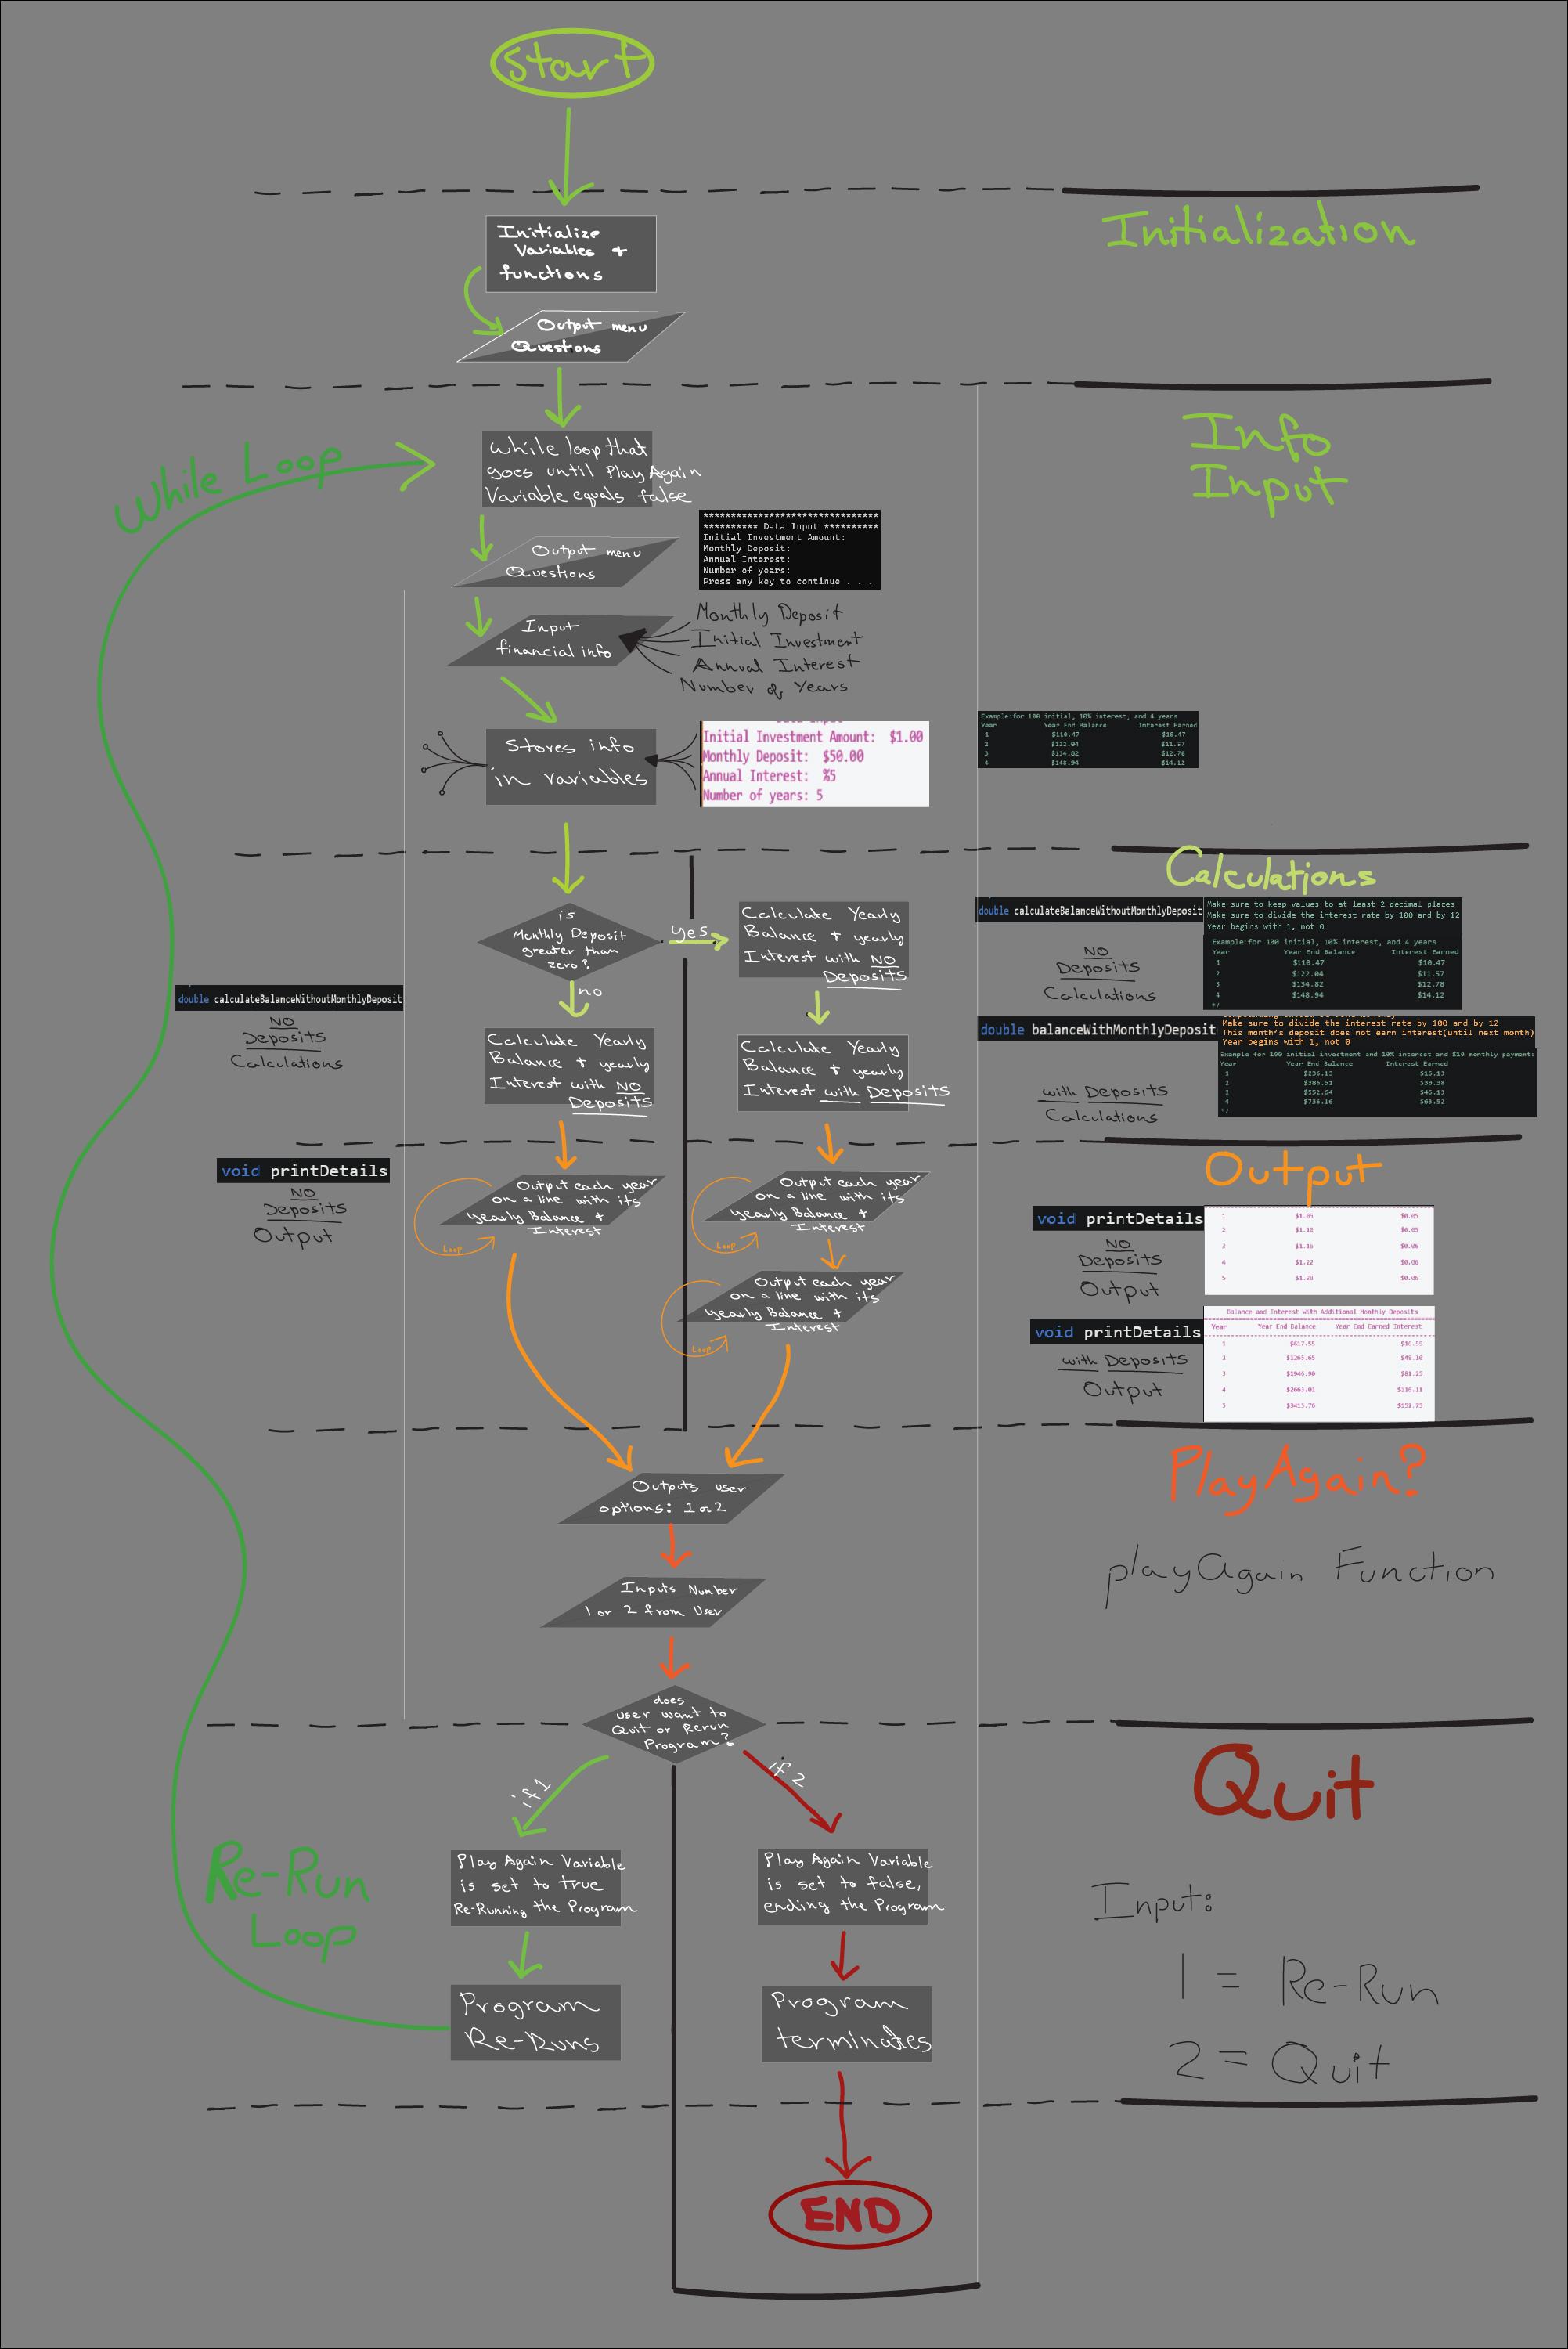 Start
Initialization
Initialize
Variables +
functions
Output menu
Questions
Info
Input
While Loop
While loop that
goes until Play Again
Variable equals false
Output menu
Questions
********************************
********** Data Input **********
Initial Investment Amount:
Monthly Deposit:
Annual Interest:
Number of years:
Press any key to continue . . .
Input
financial info
Monthly Deposit
Initial Investment
Annual Interest
Number of Years
Stores info
in variables
Initial Investment Amount: $1.00
Monthly Deposit: $50.00
Annual Interest: %5
Number of years: 5
Example:for 100 initial, 10% interest, and 4 years
Year Year End Balance Interest Earned
1 $110.47 $10.47
2 $122.04 $11.57
3 $134.82 $12.78
4 $148.94 $14.12
Calculations
is
Monthly Deposit
greater than
zero?
yes
no
Calculate Yearly
Balance + yearly
Interest with NO
Deposits
double calculateBalanceWithoutMonthlyDeposit
NO
Deposits
Calculations
Make sure to keep values to at least 2 decimal places
Make sure to divide the interest rate by 100 and by 12
Year begins with 1, not 0
Example:for 100 initial, 10% interest, and 4 years
Year Year End Balance Interest Earned
1 $110.47 $10.47
2 $122.04 $11.57
3 $134.82 $12.78
4 $148.94 $14.12
*/
double calculateBalanceWithoutMonthlyDeposit
NO
Deposits
Calculations
Calculate Yearly
Balance + yearly
Interest with NO
Deposits
Calculate Yearly
Balance + yearly
Interest with Deposits
double balanceWithMonthlyDeposit
with Deposits
Calculations
Make sure to divide the interest rate by 100 and by 12
This month's deposit does not earn interest(until next month)
Year begins with 1, not 0
Example for 100 initial investment and 10% interest and $10 monthly payment:
Year Year End Balance Interest Earned
1 $236.13 $16.13
2 $386.51 $30.38
3 $552.64 $46.13
4 $736.16 $63.52
*/
Output
void printDetails
NO
Deposits
Output
Output each year
on a line with its
yearly Balance +
Interest
Loop
Output each year
on a line with its
yearly Balance +
Interest
Loop
Output each year
on a line with its
yearly Balance +
Interest
Loop
void printDetails
NO
Deposits
Output
1 $1.05 $0.05
2 $1.10 $0.05
3 $1.16 $0.06
4 $1.22 $0.06
5 $1.28 $0.06
void printDetails
with Deposits
Output
Balance and Interest With Additional Monthly Deposits
Year Year End Balance Year End Earned Interest
1 $617.55 $16.55
2 $1265.65 $48.10
3 $1946.90 $81.25
4 $2663.01 $116.11
5 $3415.76 $152.75
Play Again?
playAgain Function
Outputs user
options: 1 or 2
Inputs Number
1 or 2 from User
does
user want to
Quit or Rerun
Program?
if 1
if 2
Quit
Play Again Variable
is set to true
Re-Running the Program
Play Again Variable
is set to false,
ending the Program
Re-Run
Loop
Program
Re-Runs
Program
terminates
Input:
1 = Re-Run
2 = Quit
END